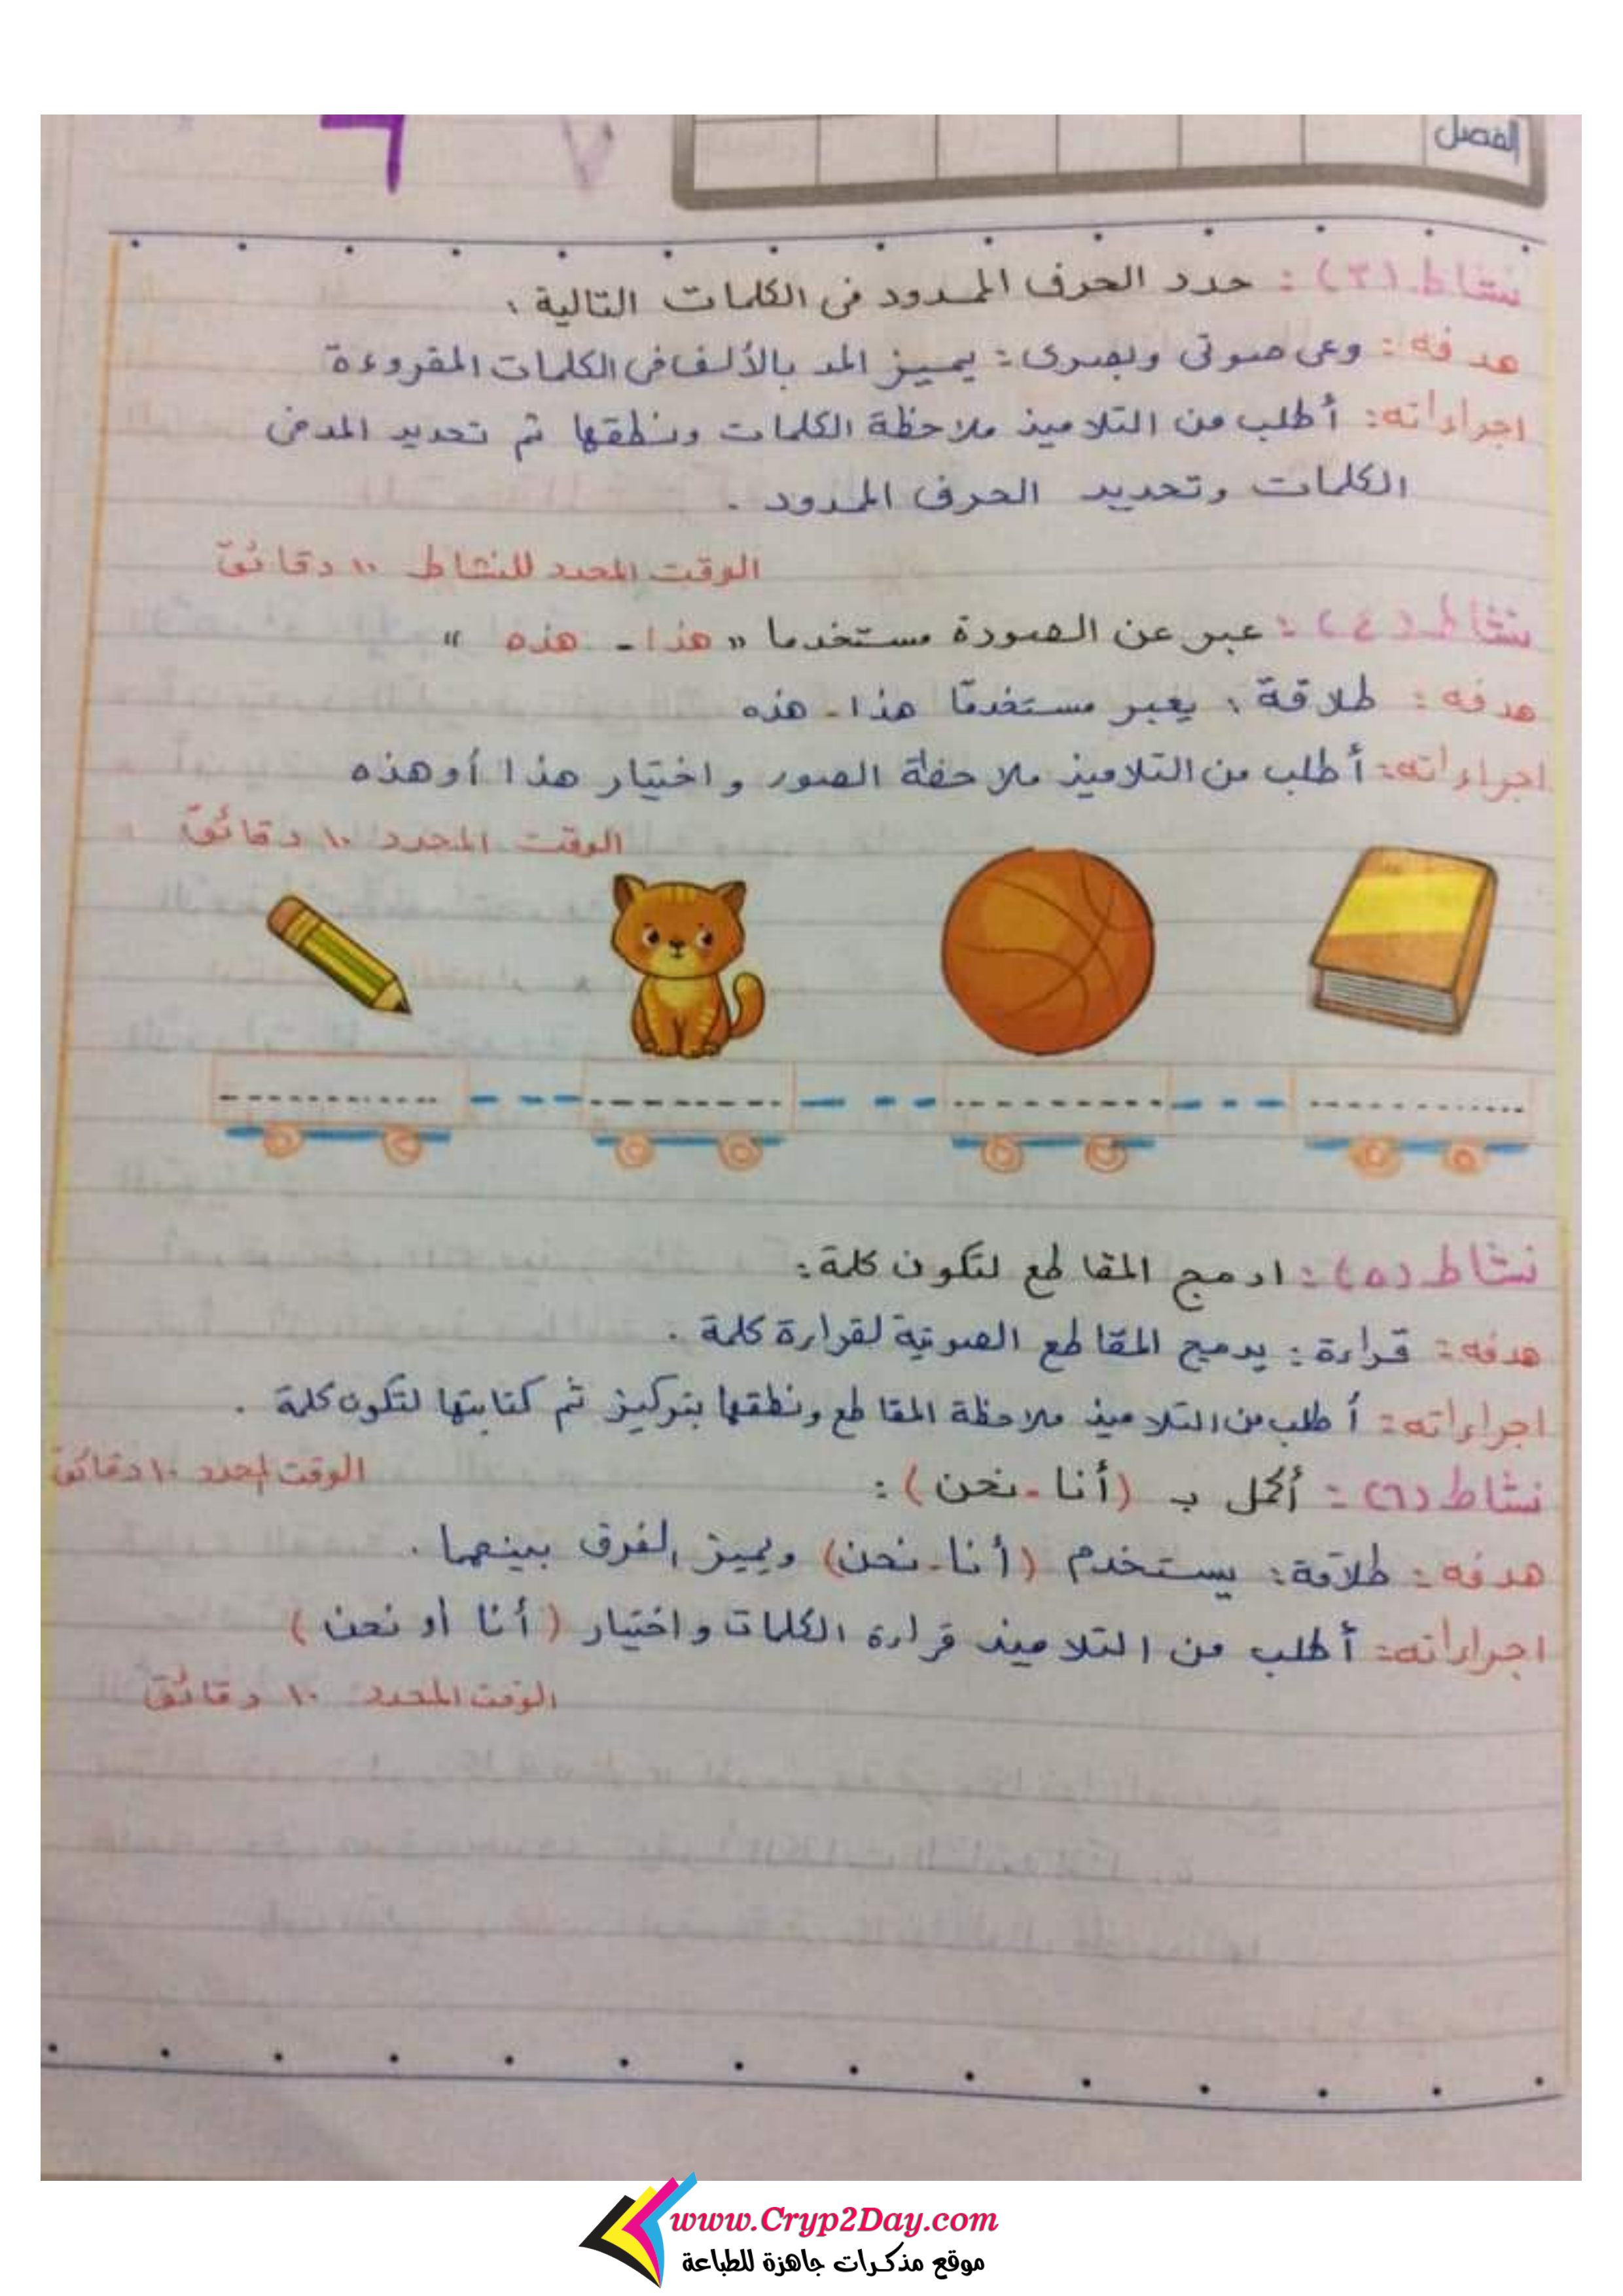 الفصل
نشاط (٣) : حدد الحرف الممدود فى الكلمات التالية :
هدفه : وعى صوتى وبصرى : يميز المد بالألف فى الكلمات المقروءة
اجراءاته : أطلب من التلاميذ ملاحظة الكلمات ونطقها ثم تحديد المد فى
الكلمات وتحديد الحرف الممدود .
الوقت المحدد للنشاط ١٠ دقائق
نشاط (٤) : عبر عن الصورة مستخدما " هذا - هذه "
هدفه : طلاقة : يعبر مستخدمًا هذا - هذه
اجراءاته : أطلب من التلاميذ ملاحظة الصور واختيار هذا أو هذه
الوقت المحدد ١٠ دقائق
نشاط (٥) : ادمج المقاطع لتكون كلمة :
هدفه : قراءة : يدمج المقاطع الصوتية لقراءة كلمة .
اجراءاته : أطلب من التلاميذ ملاحظة المقاطع ونطقها بتركيز ثم كتابتها لتكون كلمة .
الوقت المحدد ١٠ دقائق
نشاط (٦) : أكمل بـ (أنا - نحن) :
هدفه : طلاقة : يستخدم (أنا - نحن) ويميز الفرق بينهما .
اجراءاته : أطلب من التلاميذ قراءة الكلمات واختيار (أنا أو نحن)
الوقت المحدد ١٠ دقائق
www.Cryp2Day.com
موقع مذكرات جاهزة للطباعة